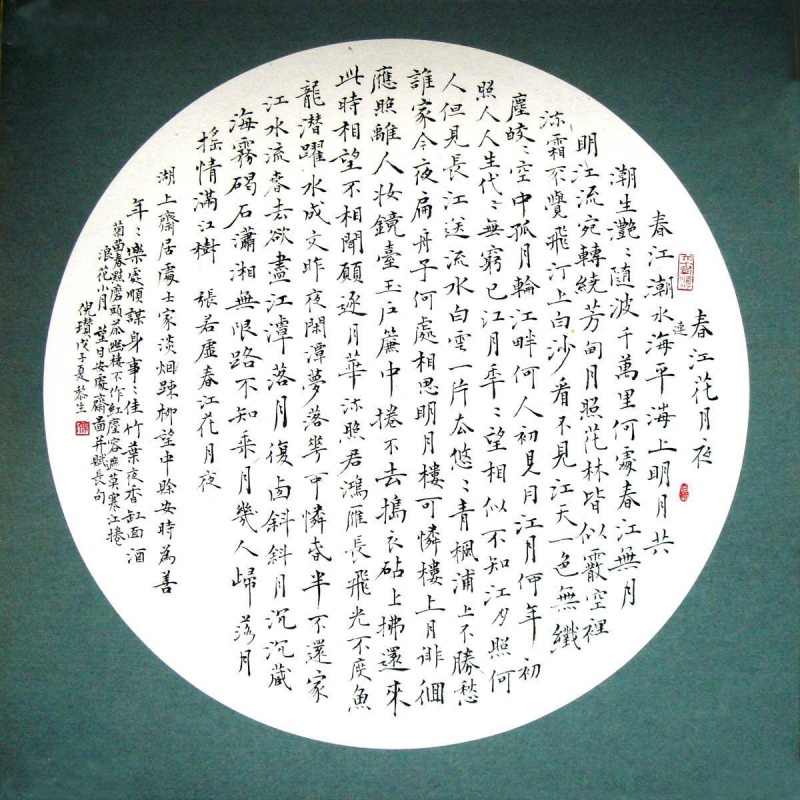 春江花月夜
春江潮水連海平海上明月共
潮生灔〻隨波千萬里何處春江無月
明江流宛轉繞芳甸月照花林皆似霰空裡
流霜不覺飛汀上白沙看不見江天一色無纖
塵皎〻空中孤月輪江畔何人初見月江月何年初
照人人生代〻無窮已江月年〻望相似不知江月照何
人但見長江送流水白雲一片去悠〻青楓浦上不勝愁
誰家今夜扁舟子何處相思明月樓可憐樓上月徘徊
應照離人妝鏡臺玉戶簾中捲不去搗衣砧上拂還來
此時相望不相聞願逐月華流照君鴻雁長飛光不度魚
龍潛躍水成文昨夜閑潭夢落花可憐春半不還家
江水流春去欲盡江潭落月復西斜斜月沉沉藏
海霧碣石瀟湘無限路不知乘月幾人歸落月
搖情滿江樹 張若虛春江花月夜
湖上齋居處士家淡烟疎柳望中賒安時為善
年〻樂處順謀身事〻佳竹葉夜香缸面酒
菊苗春點磨頭茶幽樓不作紅塵客遮莫寒江捲
浪花小月望日安處齋圖并賦長句
倪瓚戊子夏恭生